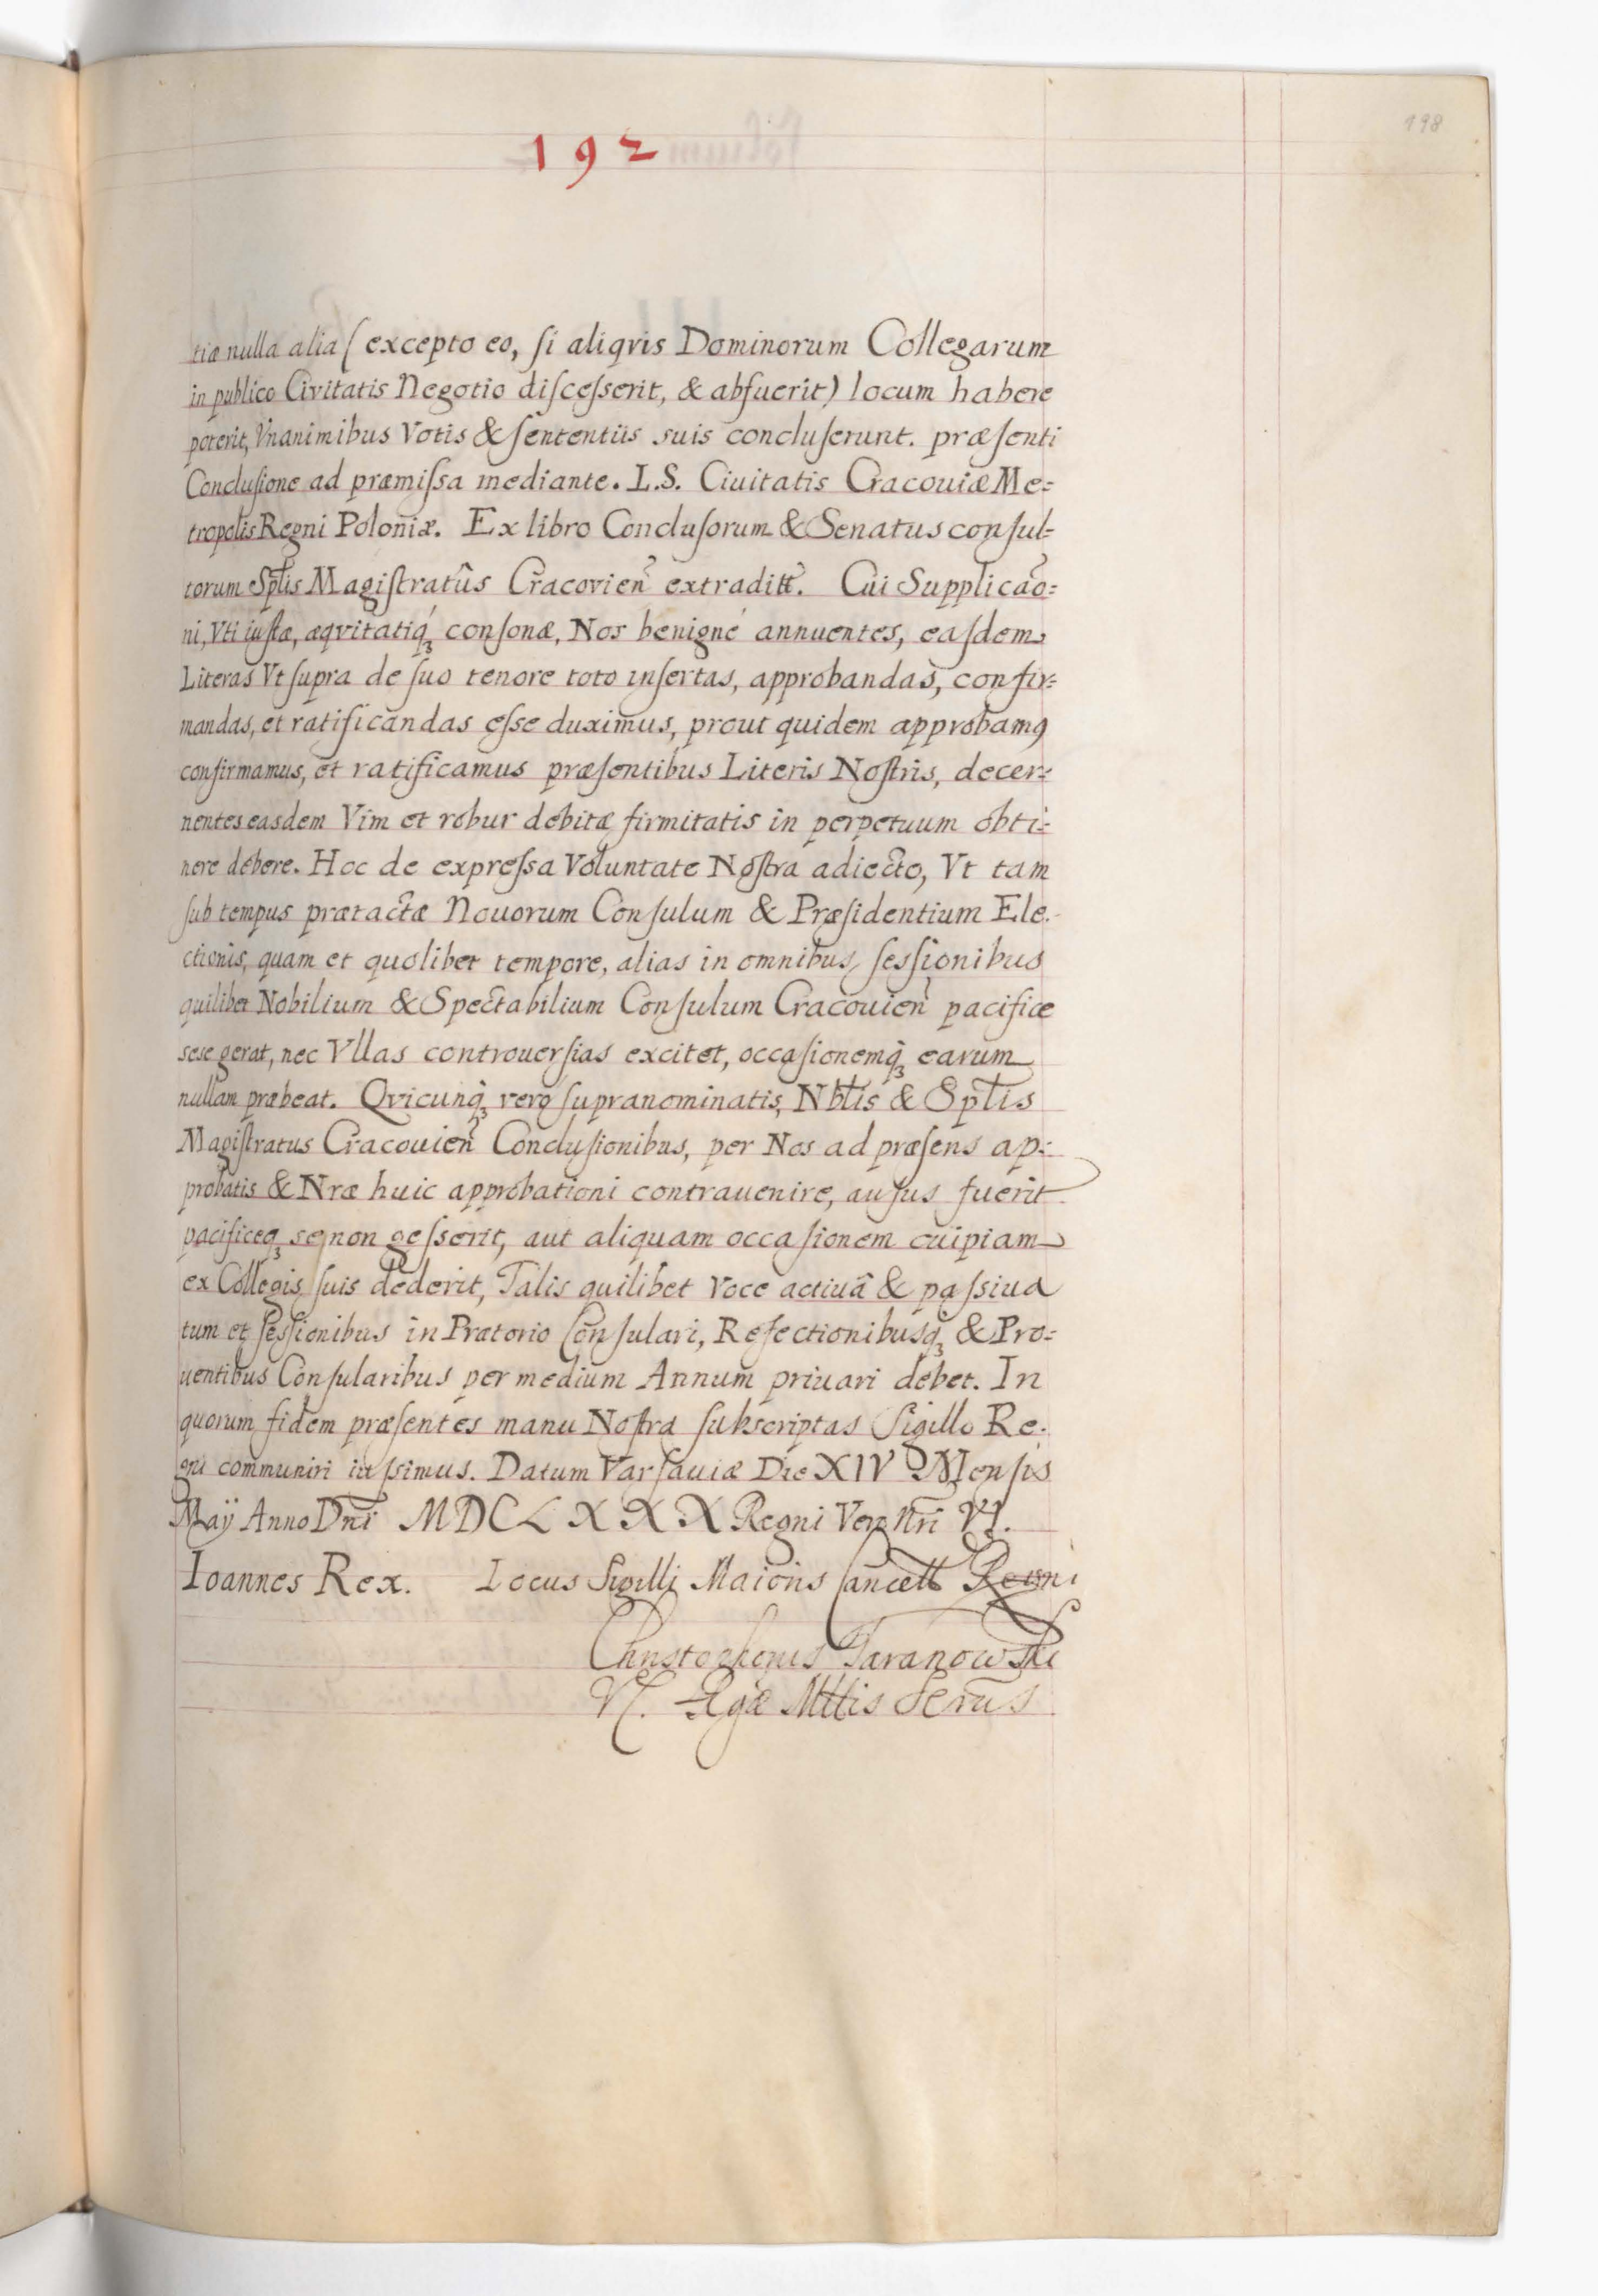 192
198
tiæ nulla alia (excepto eo, ſi aliqvis Dominorum Collegarum
in publico Civitatis Negotio diſceſserit, & abfuerit) locum habere
poterit, Vnanimibus Votis & ſententiis suis concluſerunt. præſenti
Concluſione ad præmiſsa mediante. L.S. Ciuitatis Cracouiæ Me=
tropolis Regni Poloniæ. Ex libro Concluſorum & Senatus conſul=
torum Sptlis Magiſtratûs Cracovien̄ extraditt. Cui Supplicao̅=
ni, Vti iuſtæ, æqvitatiqꝫ conſonæ, Nos benigné annuentes, eaſdem
Literas Vt ſupra de ſuo tenore toto inſertas, approbandas, confir=
mandas, et ratificandas eſse duximus, prout quidem approbamꝰ
confirmamus, et ratificamus præſentibus Literis Noſtris, decer=
nentes easdem Vim et robur debitæ firmitatis in perpetuum obti=
nere debere. Hoc de expreſsa Voluntate Noſtra adiecto, Vt tam
ſub tempus prætactæ Nouorum Conſulum & Præſidentium Ele.
ctionis, quam et quolibet tempore, alias in omnibus ſesſionibus
quilibet Nobilium & Spectabilium Conſulum Cracouien̄ pacifice
sese gerat, nec Vllas controuerſias excitet, occaſionemqꝫ earum
nullam præbeat. Qvicunqꝫ vero ſupranominatis, Nbtlis & Sptlis
Magiſtratus Cracouien̄ Concluſionibus, per Nos ad præſens ap=
probatis & Nræ huic approbationi contrauenire, auſus fuerit
pacificeqꝫ se non geſserit, aut aliquam occaſionem cuipiam
ex Collegis ſuis dederit, Talis quilibet Voce actiuâ & paſsiua
tum et ſesſionibus in Prætorio Conſulari, Refectionibusqꝫ & Pro=
uentibus Conſularibus per medium Annum priuari debet. In
quorum fidem præſentes manu Noſtra ſubscriptas Sigillo Re.
gni communiri iuſsimus. Datum Varſauiæ Die XIV Menſis
Maÿ Anno Dn̄i MDCLXXX Regni Vero Nr̄i VI.
Ioannes Rex. Locus Sigilli Maioris Cancell Regni
Christophorus Taranowski
Rgæ Mttis Secr̄us